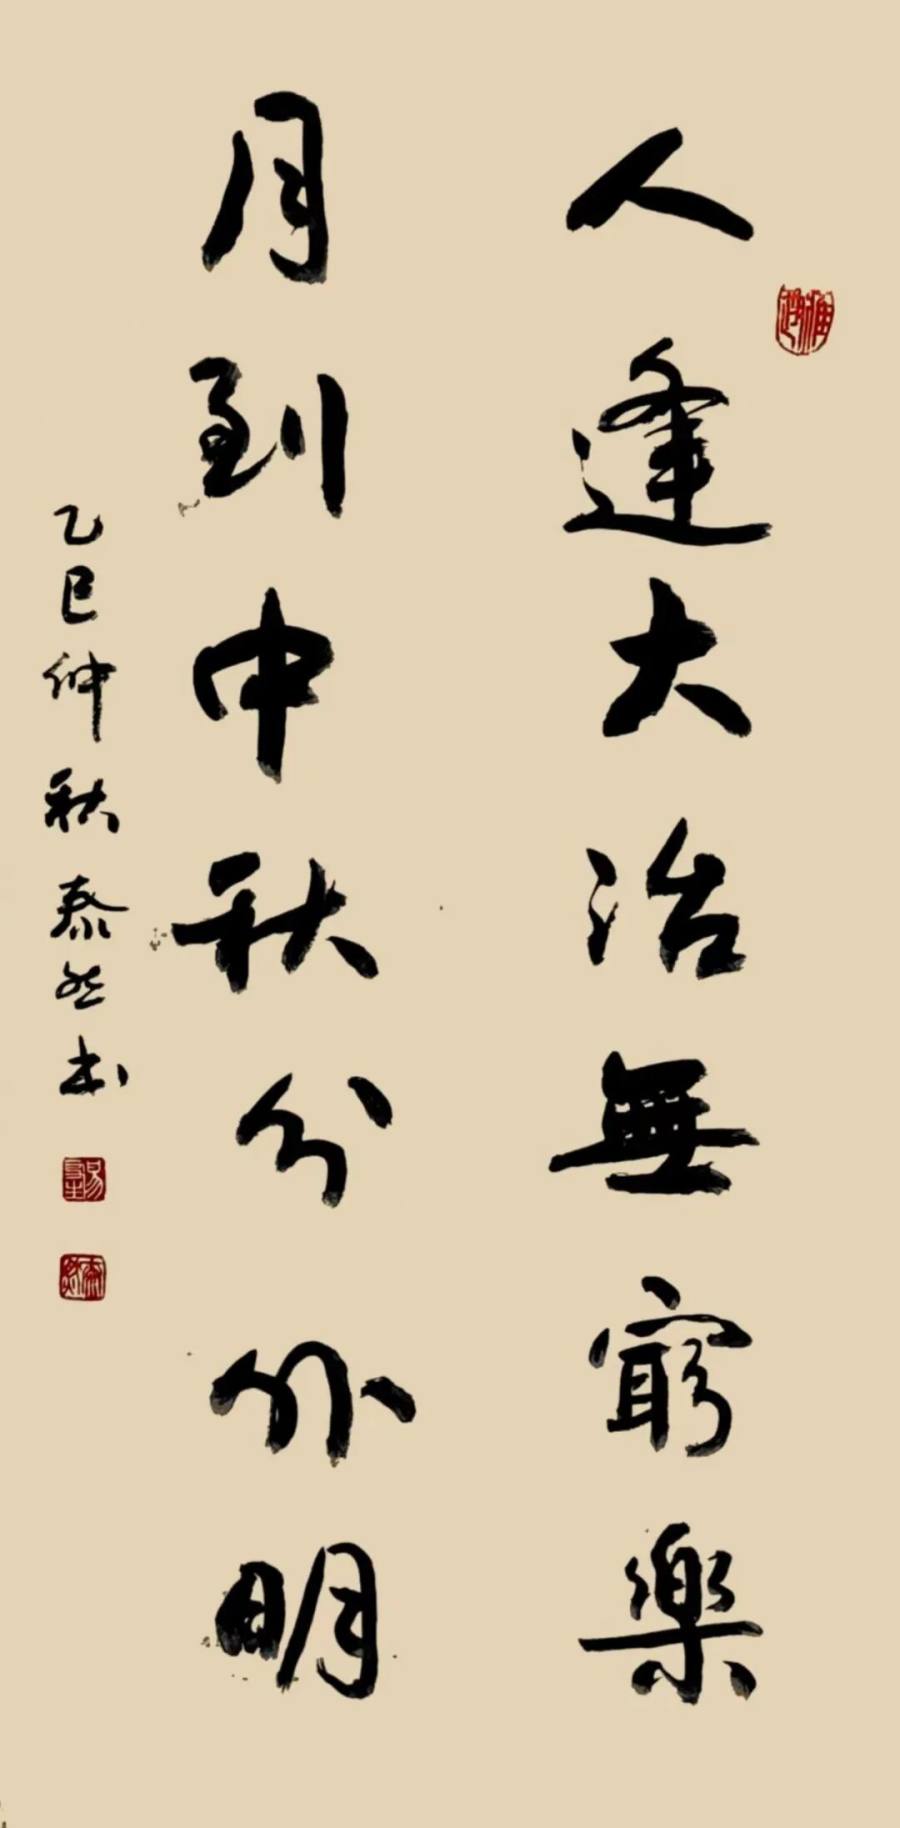 人逢大治無窮樂
月到中秋分外明
乙巳仲秋泰然书